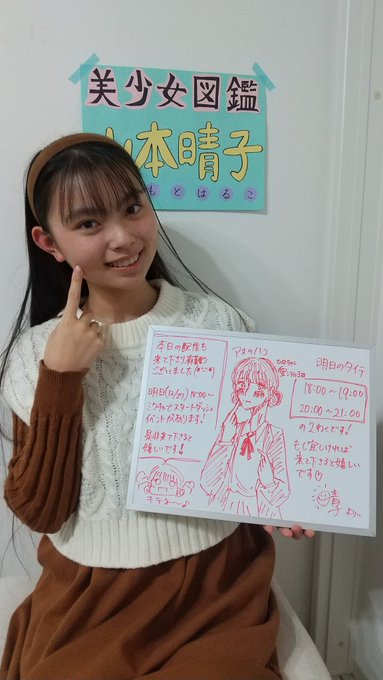 美少女図鑑
山本晴子
もとはるこ
本日の配信も
来て下さり有難う
ございました
明日(12/1) 18:00〜
ミクチャでスタートダッシュ
イベントがあります!
是非来て下さると
嬉しいです!
アオのハコ
明日のタイテ
18:00〜19:00
20:00〜21:00
の2わくです!
もし宜しければ
来て下さると嬉しい
です
晴子
より〜